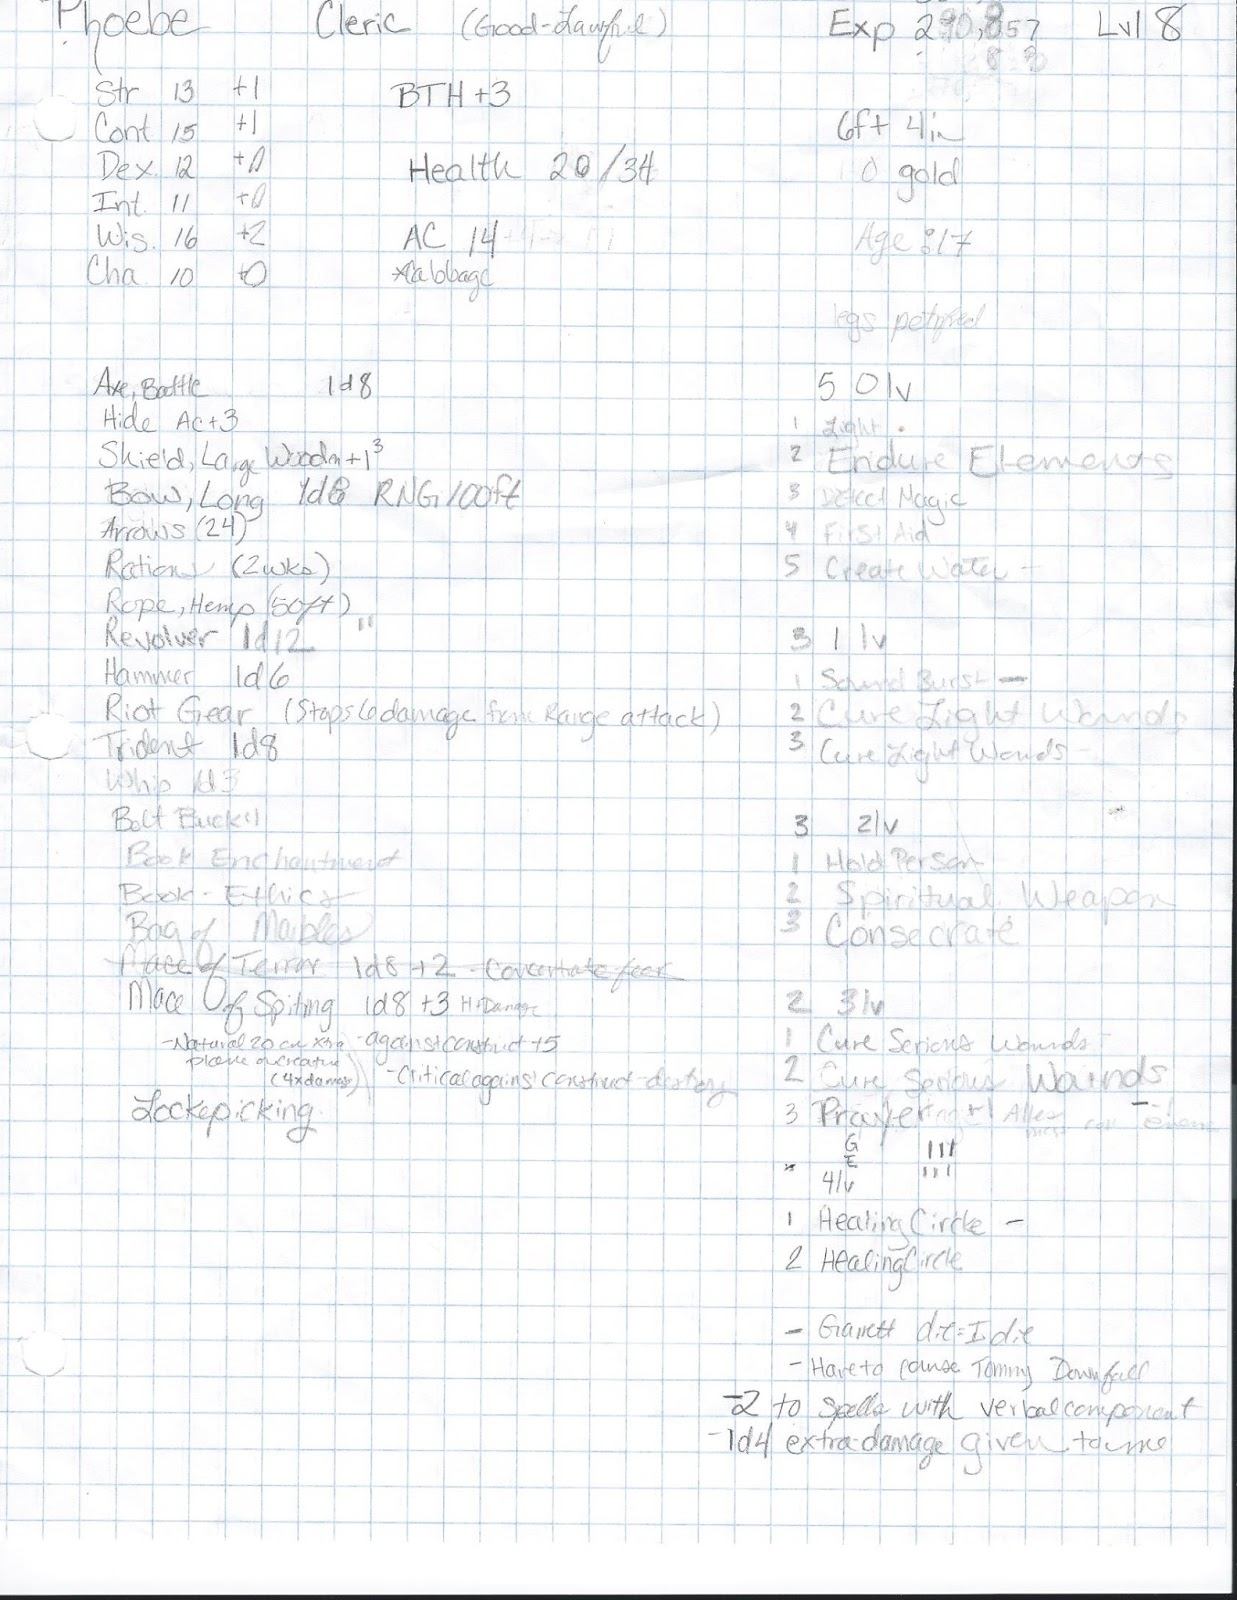 Phoebe Cleric (Good-Lawful) Exp 290,857 Lvl 8
Str 13 +1 BTH +3
Cont 15 +1 6ft 4in
Dex. 12 +0 Health 20/34 0 gold
Int. 11 +0
Wis. 16 +2 AC 14 Age :17
Cha. 10 +0 *Cabbage
legs petrified
Axe, Battle 1d8
Hide AC+3
Shield, Large Wooden +1 3
Bow, Long 1d6 RNG 100ft
Arrows (24)
Rations (2wks)
Rope, Hemp (50ft)
Revolver 1d12 "
Hammer 1d6
Riot Gear (Stops 6 damage from Range attack)
Trident 1d8
Whip 1d3
Belt Buckel
Book Enchantment
Book - Ethics
Bag of Marbles
Mace of Terror 1d8 +2 - Concentrate fear
Mace Of Spiting 1d8 +3 Hit Damage
-Natural 20 -against construct +5
(4xdamage) -Critical against construct-destroy
Lockepicking
5 0lv
1 Light
2 Endure Elements
3 Detect Magic
4 First Aid
5 Create Water -
3 1 lv
1 Sound Burst -
2 Cure Light Wounds
3 Cure Light Wounds -
3 2lv
1 Hold Person
2 Spiritual Weapon
3 Consecrate
2 3lv
1 Cure Serious Wounds -
2 Cure Serious Wounds
3 Prayer
G III
E III
* 4lv
1 Healing Circle -
2 Healing Circle
- Garrett die = I die
- Have to cause Tommy Downfall
-2 to Spells with verbal component
-1d4 extra damage given to me